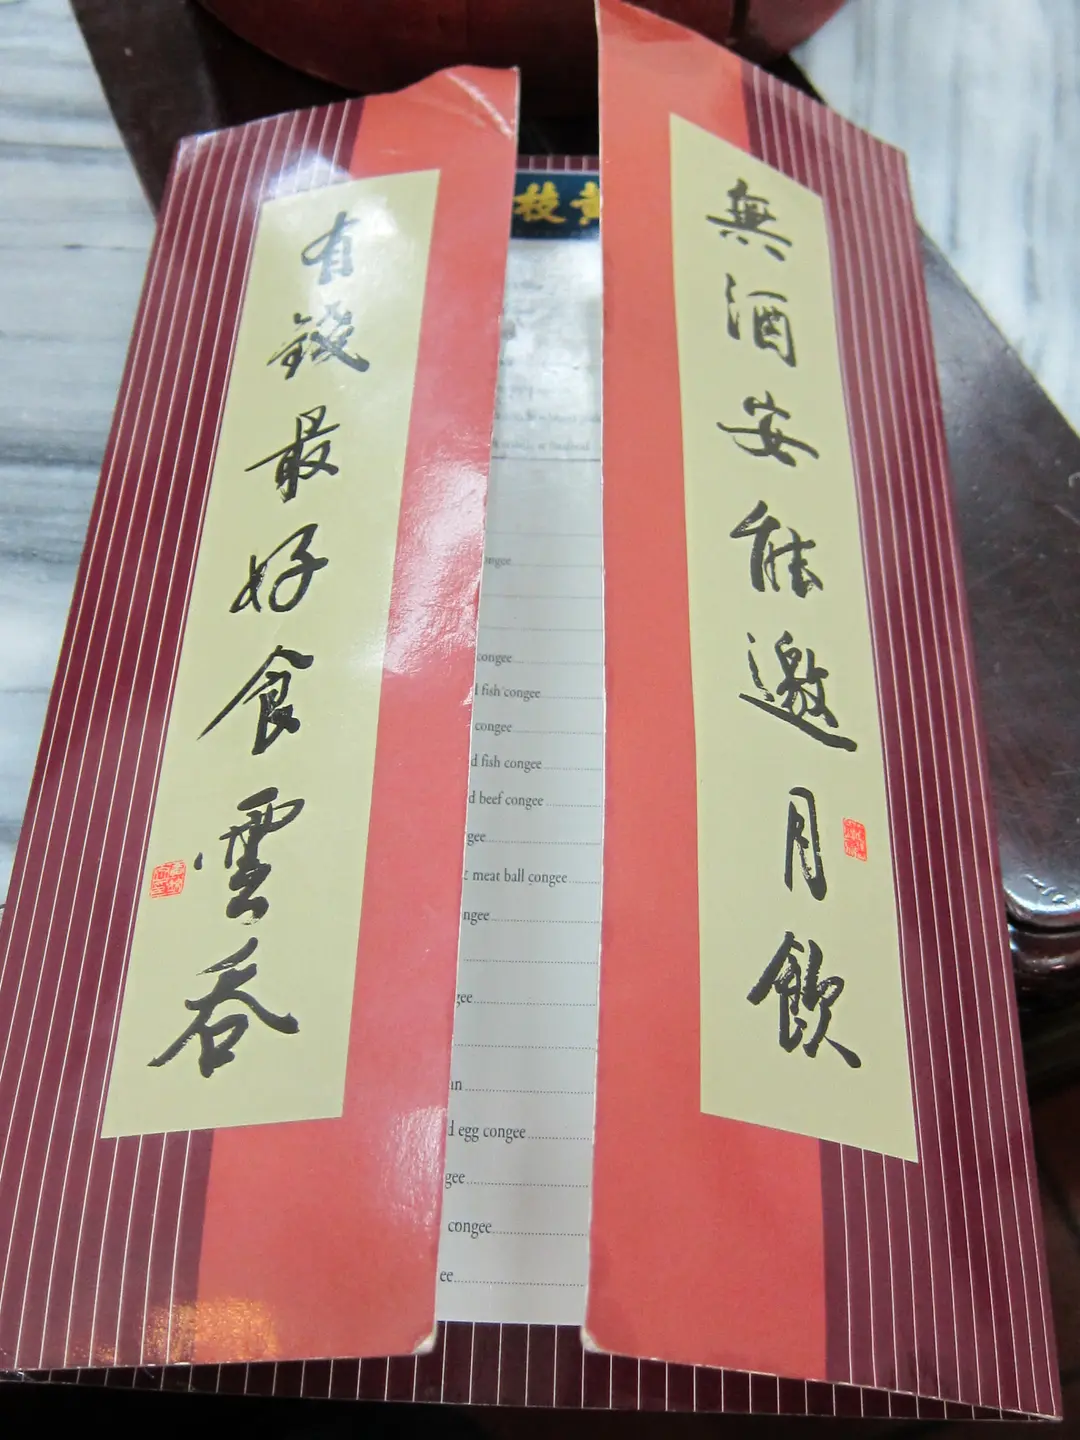 無酒安能邀月飲
有錢最好食雲吞
黃枝
ongee
congee
d fish congee
congee
d fish congee
d beef congee
gee
meat ball congee
ngee
gee
in
d egg congee
gee
congee
ee